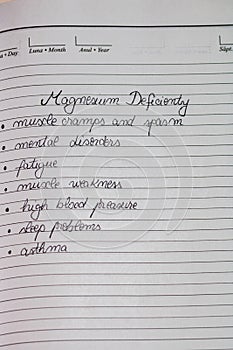 a • Day
Luna • Month
Anul • Year
Săpt.
Magnesium Deficienty
• muscle cramps and spasm
• mental disorders
• fatigue
• muscle weakness
• high blood preasure
• sleep problems
• asthma